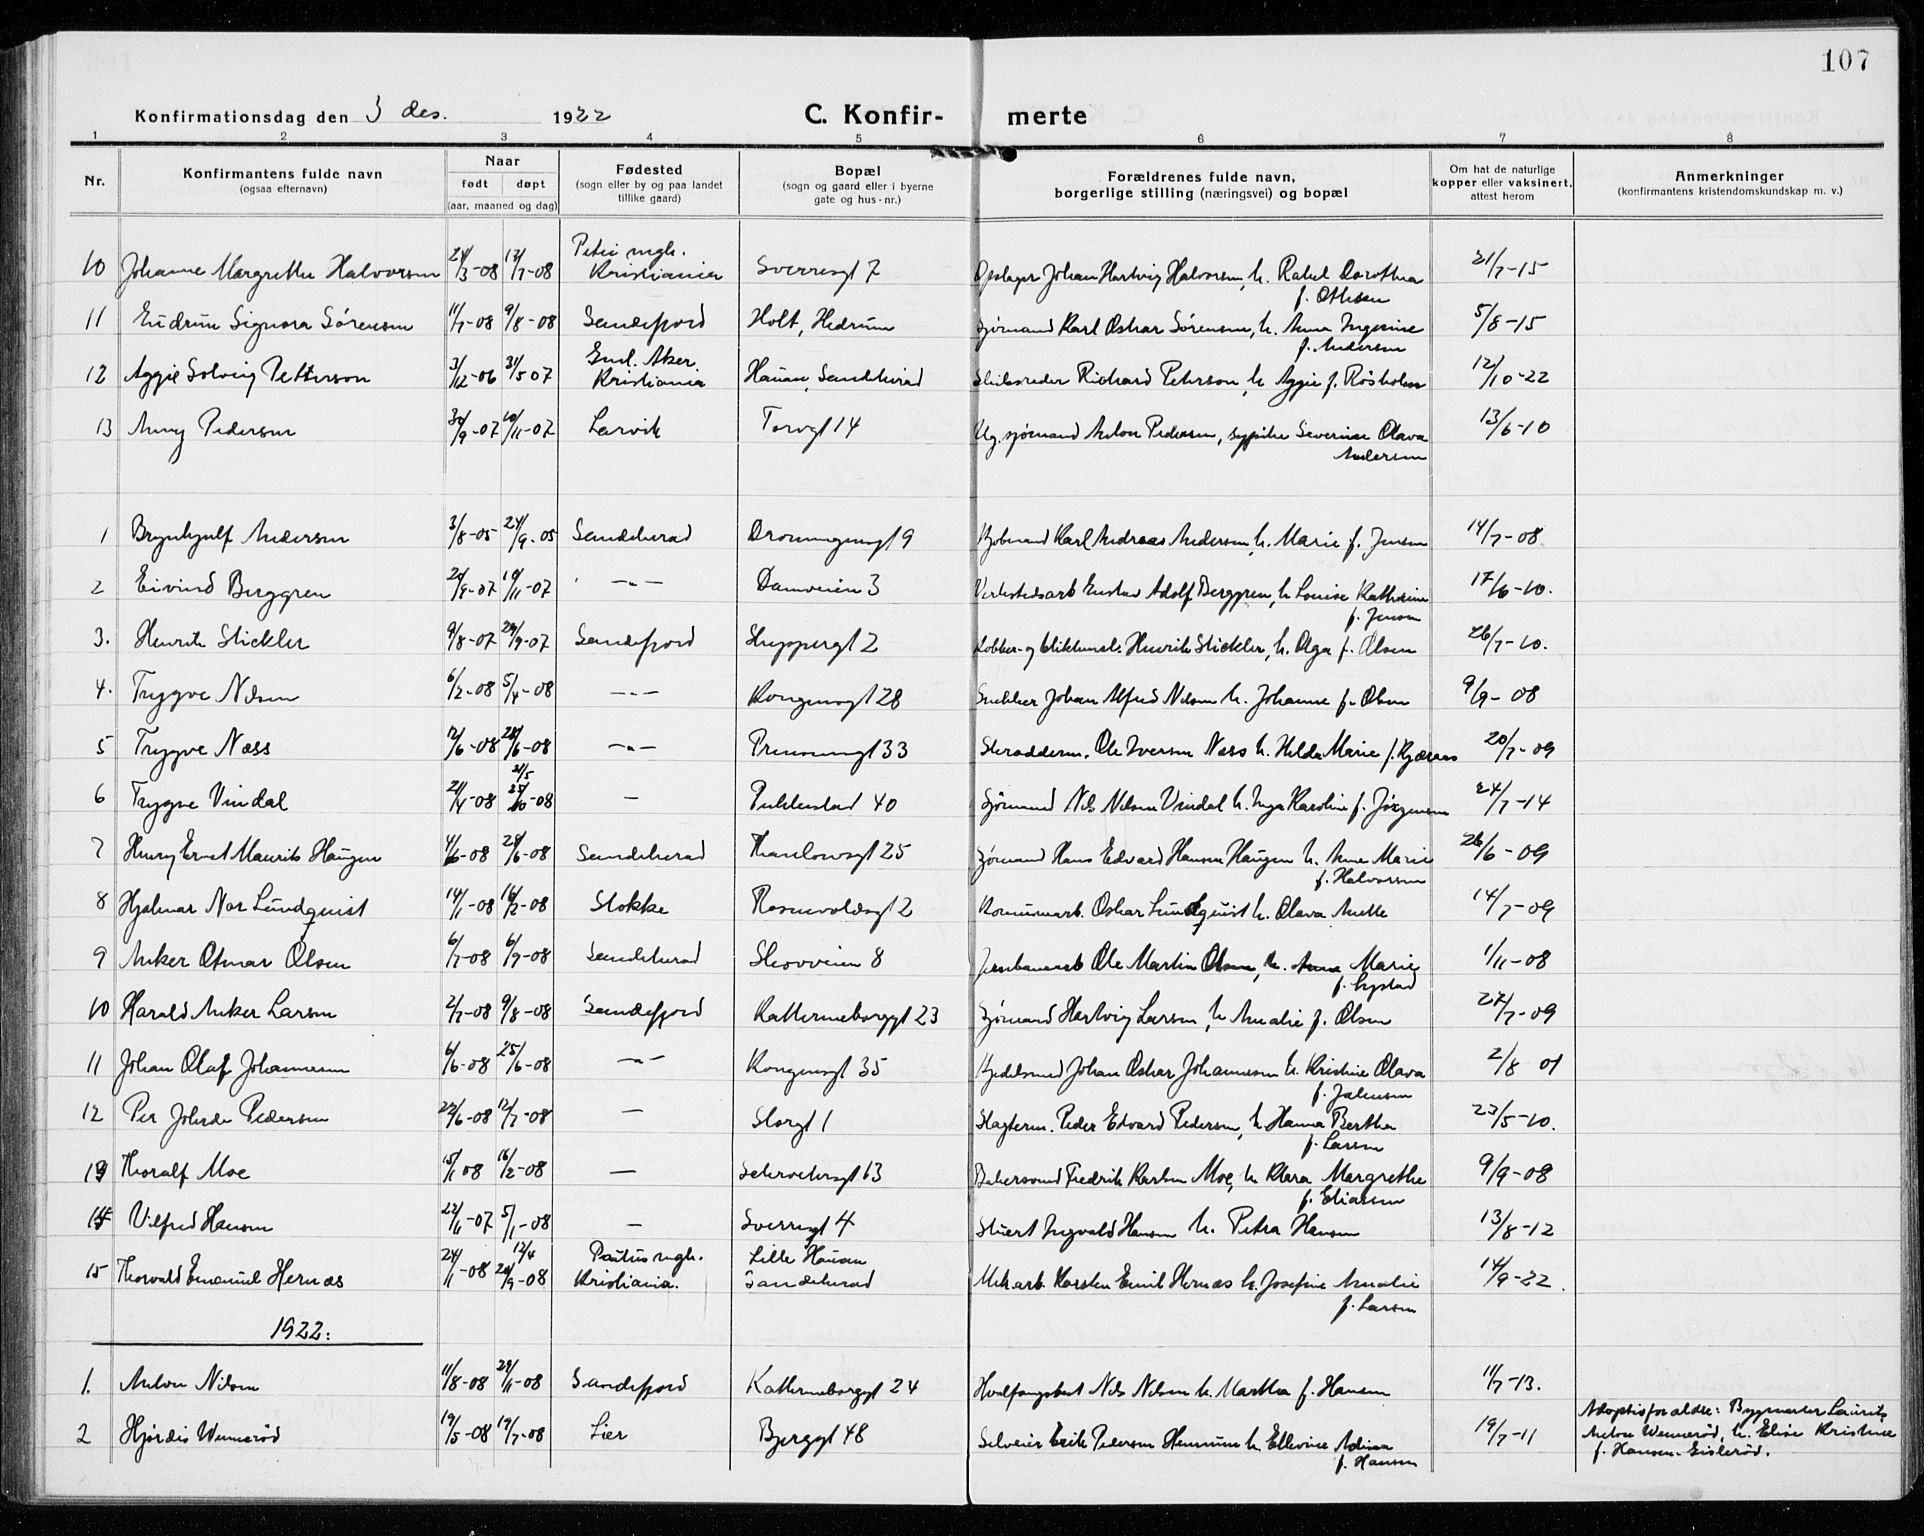 107
Konfirmationsdag den 3 des. 1922 C. Konfir- merte
1 2 3 4 5 6 7 8
Nr. Konfirmantens fulde navn (ogsaa efternavn) Naar født døpt (aar, maaned og dag) Fødested (sogn eller by og paa landet tillike gaard) Bopæl (sogn og gaard eller i byerne gate og hus-nr.) Forældrenes fulde navn, borgerlige stilling (næringsvei) og bopæl Om hat de naturlige kopper eller vaksinert, attest herom Anmerkninger (konfirmantens kristendomskundskap m. v.)
10 Johanne Margrethe Halvorsen 24/3-08 12/7-08 Petri mgh. Kristiania Sverresgt 7 Opslager Johan Hartvig Halvorsen, h. Rakel Dorothea f. Othesen 21/7-15
11 Gudrun Signora Sørensen 11/7-08 9/8-08 Sandefjord Holt, Hedrum Sjømand Karl Oskar Sørensen, h. Anna Ingerine f. Andersen 5/8-15
12 Aggie Solveig Petterson 3/12-06 31/5 07 Gml. Aker. Kristiania Hauan, Sandeherad Skibsreder Richard Peterson, h Aggie f. Røsholm 12/10-22
13 Anny Pedersen 30/9-07 10/11-07 Larvik Torvgt 14 Ug. sjømand Anton Pedersen, sypike Severine Olava Andersen 13/6-10
1 Brynhjulf Andersen 3/8-05 24/9-05 Sandeherad Dronningensgt 9 Kjøbmand Karl Andreas Andersen, h. Marie f. Jensen 14/7-08
2 Eivind Berggren 20/9-07 10/11-07 -"- Damveien 3 Verkstedsarb Gustav Adolf Berggren, h Louise Kathrine f. Jensen 17/6-10.
3. Henrik Stickler 9/8-07 29/9-07 Sandefjord Skippergt 2 Kobber- og blikkensl. Henrik Stickler, h. Olga f. Olsen 26/7-10.
4. Trygve Nilsen 6/2-08 5/4-08 -"- Kongensgt 28 Snekker Johan Alfred Nilsen h. Johanne f. Olsen 9/9-08
5 Trygve Næss 2/6-08 28/6-08 -"- Prinsensgt 33 Skrædderm. Ole Iversen Næss h. Hilda Marie f. Kjæraas 20/7-09
6 Trygve Vindal 21/4-08 31/5 -08 - Pukkestad 40 Sjømand Nils Nilsen Vindal h. Inga Karoline f. Jørgensen 24/7-14
7 Henry Ernst Maurits Haugen 4/6-08 28/6-08 Sandeherad Thaulowsgt 25 Sjømand Hans Edvard Hansen Haugen h. Anne Marie f. Halvorsen 26/6-09
8 Hjalmar Nor Lundquist 14/1-08 16/2-08 Stokke Rosenvoldsgt 2 Kommunearb. Oskar Lundquist h. Olava Anette 14/7-09
9 Anker Otmar Olsen 6/7-08 6/9-08 Sandeherad Skovveien 8 Jernbanearb Ole Martin Olsen, h. Anna Marie f. Lystad 1/11-08
10 Harald Anker Larsen 2/7-08 9/8-08 Sandefjord Kathrineborggt 23 Sjømand Hartvig Larsen, h Amalie f. Olsen 27/7-09
11 Johan Olaf Johannesen 6/6-08 25/6-08 -"- Kongensgt 35 Kjedelsmed Johan Oskar Johannesen h. Kristine Olava f. Jakobsen 2/8 01
12 Per Pedersen 22/6-08 12/7-08 - Storgt 1 Slagterm. Peder Edvard Pedersen, h Hanna Bertha f. Larsen 23/5-10.
13 Thoralf Moe 15/1 08 16/2-08 - Schrøtersgt 13 Bakersvend Fredrik Karlsen Moe, h Klara Margrethe f. Eliassen 9/9-08
14 Vilfred Hansen 22/11-07 5/1-08 - Sverresgt 4 Stuert Ingvald Hansen h. Petra Hansen 13/8-12
15 Thorvald Emanuel Hernæs 24/1-08 12/4 20/9-08 Paulus mgh. Kristiania. Lille Hauan Sandeherad Mek.arb. Karsten Emil Hernæs h. Josefine Amalie f. Larsen 14/9-22.
1922:
1. Anton Nilsen 11/8-08 29/11-08 Sandefjord Kathrineborggt 24 Hvalfangstbest Nils Nilsen h. Martha f. Hansen 11/7-13.
2 Hjørdis Wennerød 19/5-08 19/7-08 Lier Bjerggt 48 Selveier Erik Pedersen h. Ellevine Adina f. Hansen 19/7-11 Adoptivforældre: Bygmester Laurits
Anton Wennerød, h. Elise Kristine
f. Hansen-Gislerød.